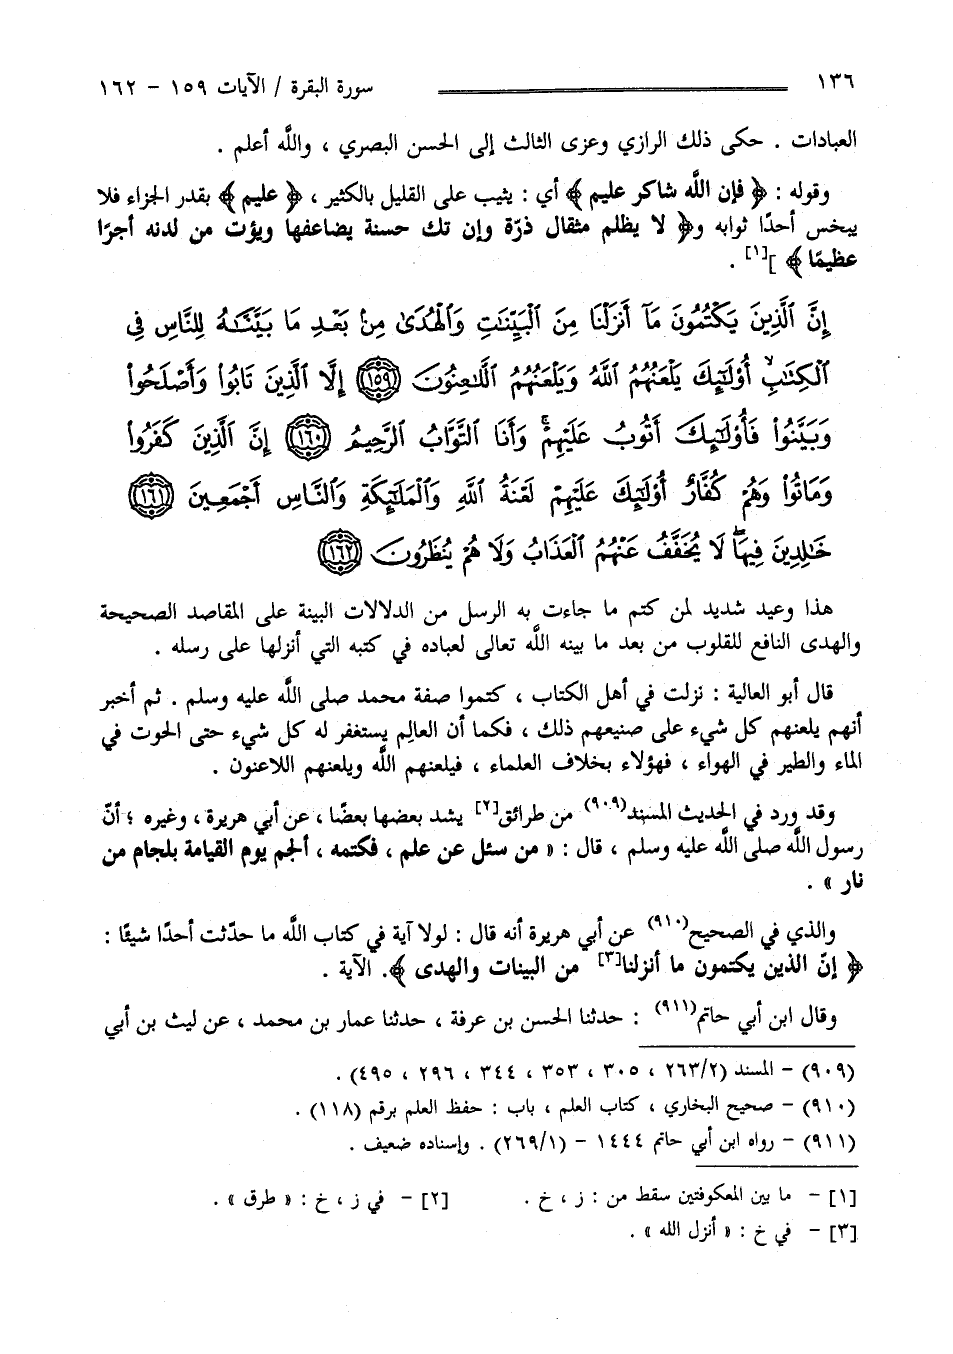 ١٣٦ سورة البقرة / الآيات ١٥٩ - ١٦٢
العبادات . حكى ذلك الرازي وعزى الثالث إلى الحسن البصري ، واللَّه أعلم .
وقوله : ﴿ فإن اللَّه شاكر عليم ﴾ أي : يثيب على القليل بالكثير ، ﴿ عليم ﴾ بقدر الجزاء فلا
يبخس أحدًا ثوابه و﴿ لا يظلم مثقال ذرّة وإن تك حسنة يضاعفها ويؤت من لدنه أجرًا
عظيمًا ﴾ ][١] .
إِنَّ الَّذِينَ يَكْتُمُونَ مَآ أَنزَلْنَا مِنَ الْبَيِّنَٰتِ وَالْهُدَىٰ مِنۢ بَعْدِ مَا بَيَّنَّٰهُ لِلنَّاسِ فِى
الْكِتَٰبِۙ أُوْلَٰٓئِكَ يَلْعَنُهُمُ اللَّهُ وَيَلْعَنُهُمُ اللَّٰعِنُونَ ١٥٩ إِلَّا الَّذِينَ تَابُوا۟ وَأَصْلَحُوا۟
وَبَيَّنُوا۟ فَأُوْلَٰٓئِكَ أَتُوبُ عَلَيْهِمْۚ وَأَنَا التَّوَّابُ الرَّحِيمُ ١٦٠ إِنَّ الَّذِينَ كَفَرُوا۟
وَمَاتُوا۟ وَهُمْ كُفَّارٌ أُوْلَٰٓئِكَ عَلَيْهِمْ لَعْنَةُ اللَّهِ وَالْمَلَٰٓئِكَةِ وَالنَّاسِ أَجْمَعِينَ ١٦١
خَٰلِدِينَ فِيهَاۖ لَا يُخَفَّفُ عَنْهُمُ الْعَذَابُ وَلَا هُمْ يُنظَرُونَ ١٦٢
هذا وعيد شديد لمن كتم ما جاءت به الرسل من الدلالات البينة على المقاصد الصحيحة
والهدى النافع للقلوب من بعد ما بينه اللَّه تعالى لعباده في كتبه التي أنزلها على رسله .
قال أبو العالية : نزلت في أهل الكتاب ، كتموا صفة محمد صلى اللَّه عليه وسلم . ثم أخبر
أنهم يلعنهم كل شيء على صنيعهم ذلك ، فكما أن العالِم يستغفر له كل شيء حتى الحوت في
الماء والطير في الهواء ، فهؤلاء بخلاف العلماء ، فيلعنهم اللَّه ويلعنهم اللاعنون .
وقد ورد في الحديث المسند(٩٠٩) من طرائق[٢] يشد بعضها بعضًا ، عن أبي هريرة ، وغيره ؛ أنّ
رسول اللَّه صلى اللَّه عليه وسلم ، قال : « من سئل عن علم ، فكتمه ، ألجم يوم القيامة بلجام من
نار » .
والذي في الصحيح(٩١٠) عن أبي هريرة أنه قال : لولا آية في كتاب اللَّه ما حدّثت أحدًا شيئًا :
﴿ إنّ الذين يكتمون ما أنزلنا[٣] من البينات والهدى ﴾. الآية .
وقال ابن أبي حاتم(٩١١) : حدثنا الحسن بن عرفة ، حدثنا عمار بن محمد ، عن ليث بن أبي
(٩٠٩) - المسند (٢٦٣/٢ ، ٣٠٥ ، ٣٥٣ ، ٣٤٤ ، ٢٩٦ ، ٤٩٥) .
(٩١٠) - صحيح البخاري ، كتاب العلم ، باب : حفظ العلم برقم (١١٨) .
(٩١١) - رواه ابن أبي حاتم ١٤٤٤ - (٢٦٩/١) . وإسناده ضعيف .
[١] - ما بين المعكوفتين سقط من : ز ، خ . [٢] - في ز ، خ : « طرق » .
[٣] - في خ : « أنزل الله » .